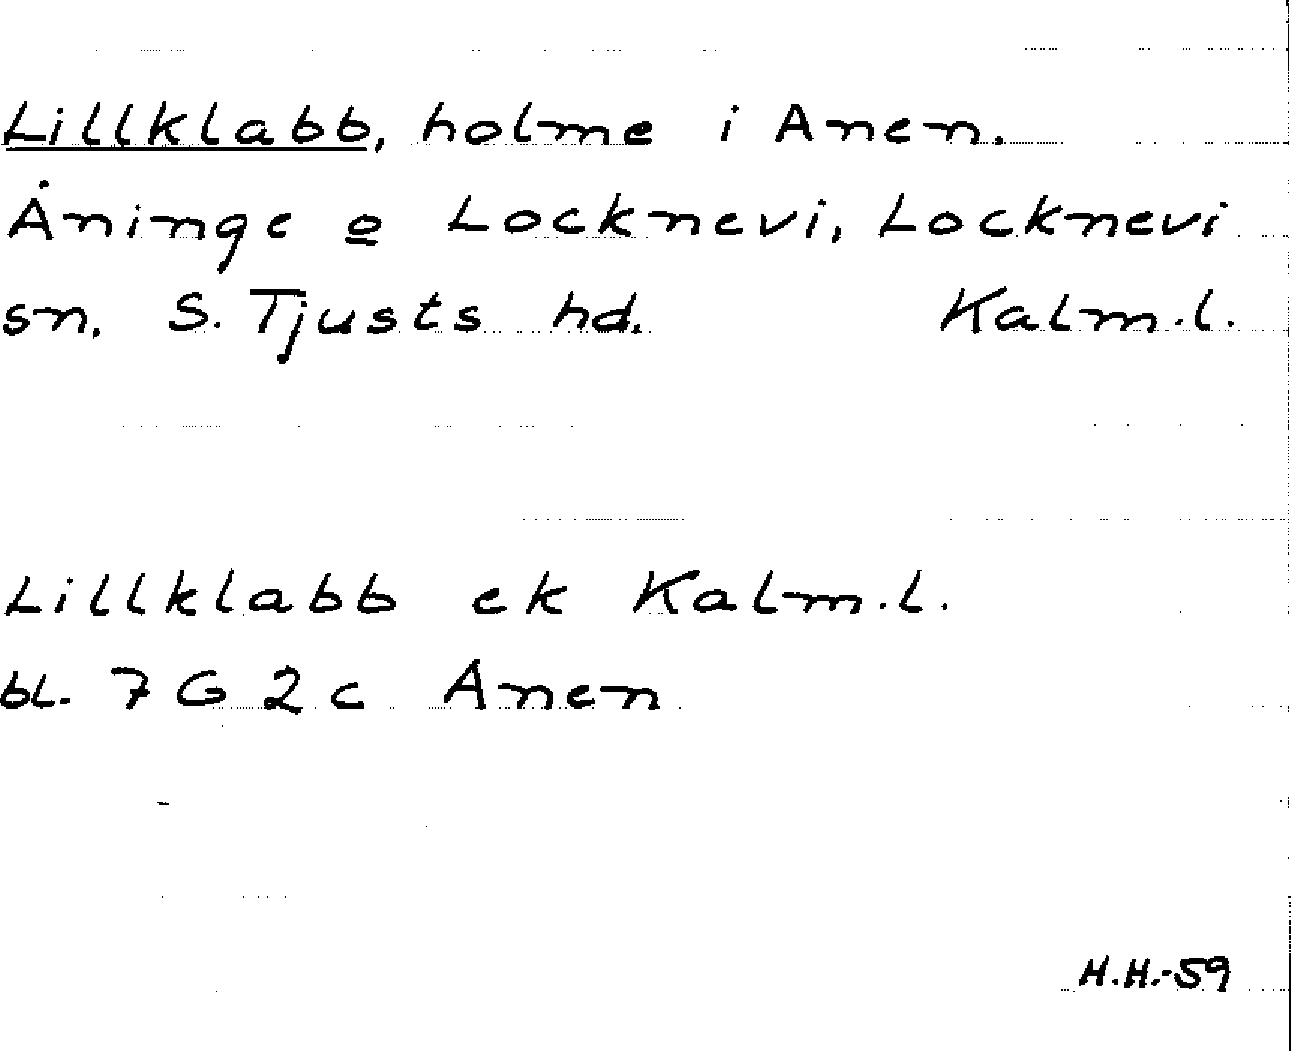 Lillklabb, holme i Anen.
Åninge o Locknevi, Locknevi
sn. S. Tjusts hd. Kalm.l.
Lillklabb ek Kalm.l.
bl. 7 G 2 c Anen
H.H.-59